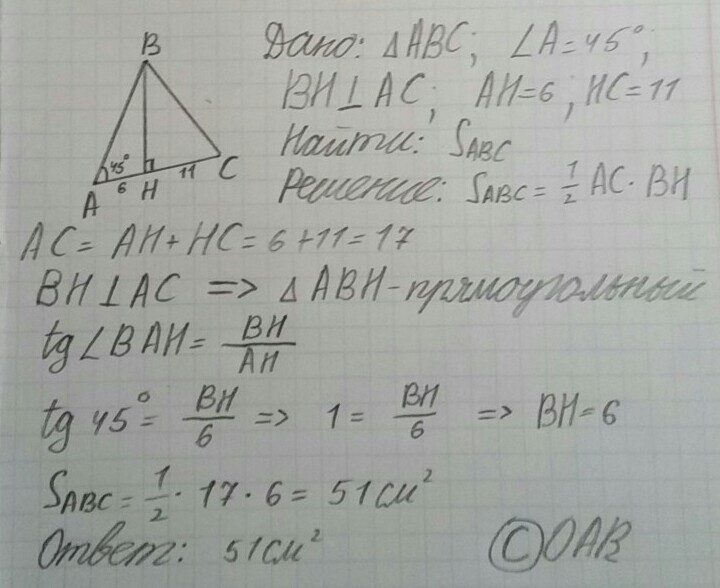 B
45°
6
11
A
H
C
Дано: △ABC; ∠A=45°;
BH⊥AC; AH=6; HC=11
Найти: S_ABC
Решение: S_ABC = 1/2 AC · BH
AC = AH + HC = 6 + 11 = 17
BH⊥AC => △ABH - прямоугольный
tg∠BAH = BH/AH
tg 45° = BH/6 => 1 = BH/6 => BH = 6
S_ABC = 1/2 · 17 · 6 = 51 см²
Ответ: 51 см²
©OAB